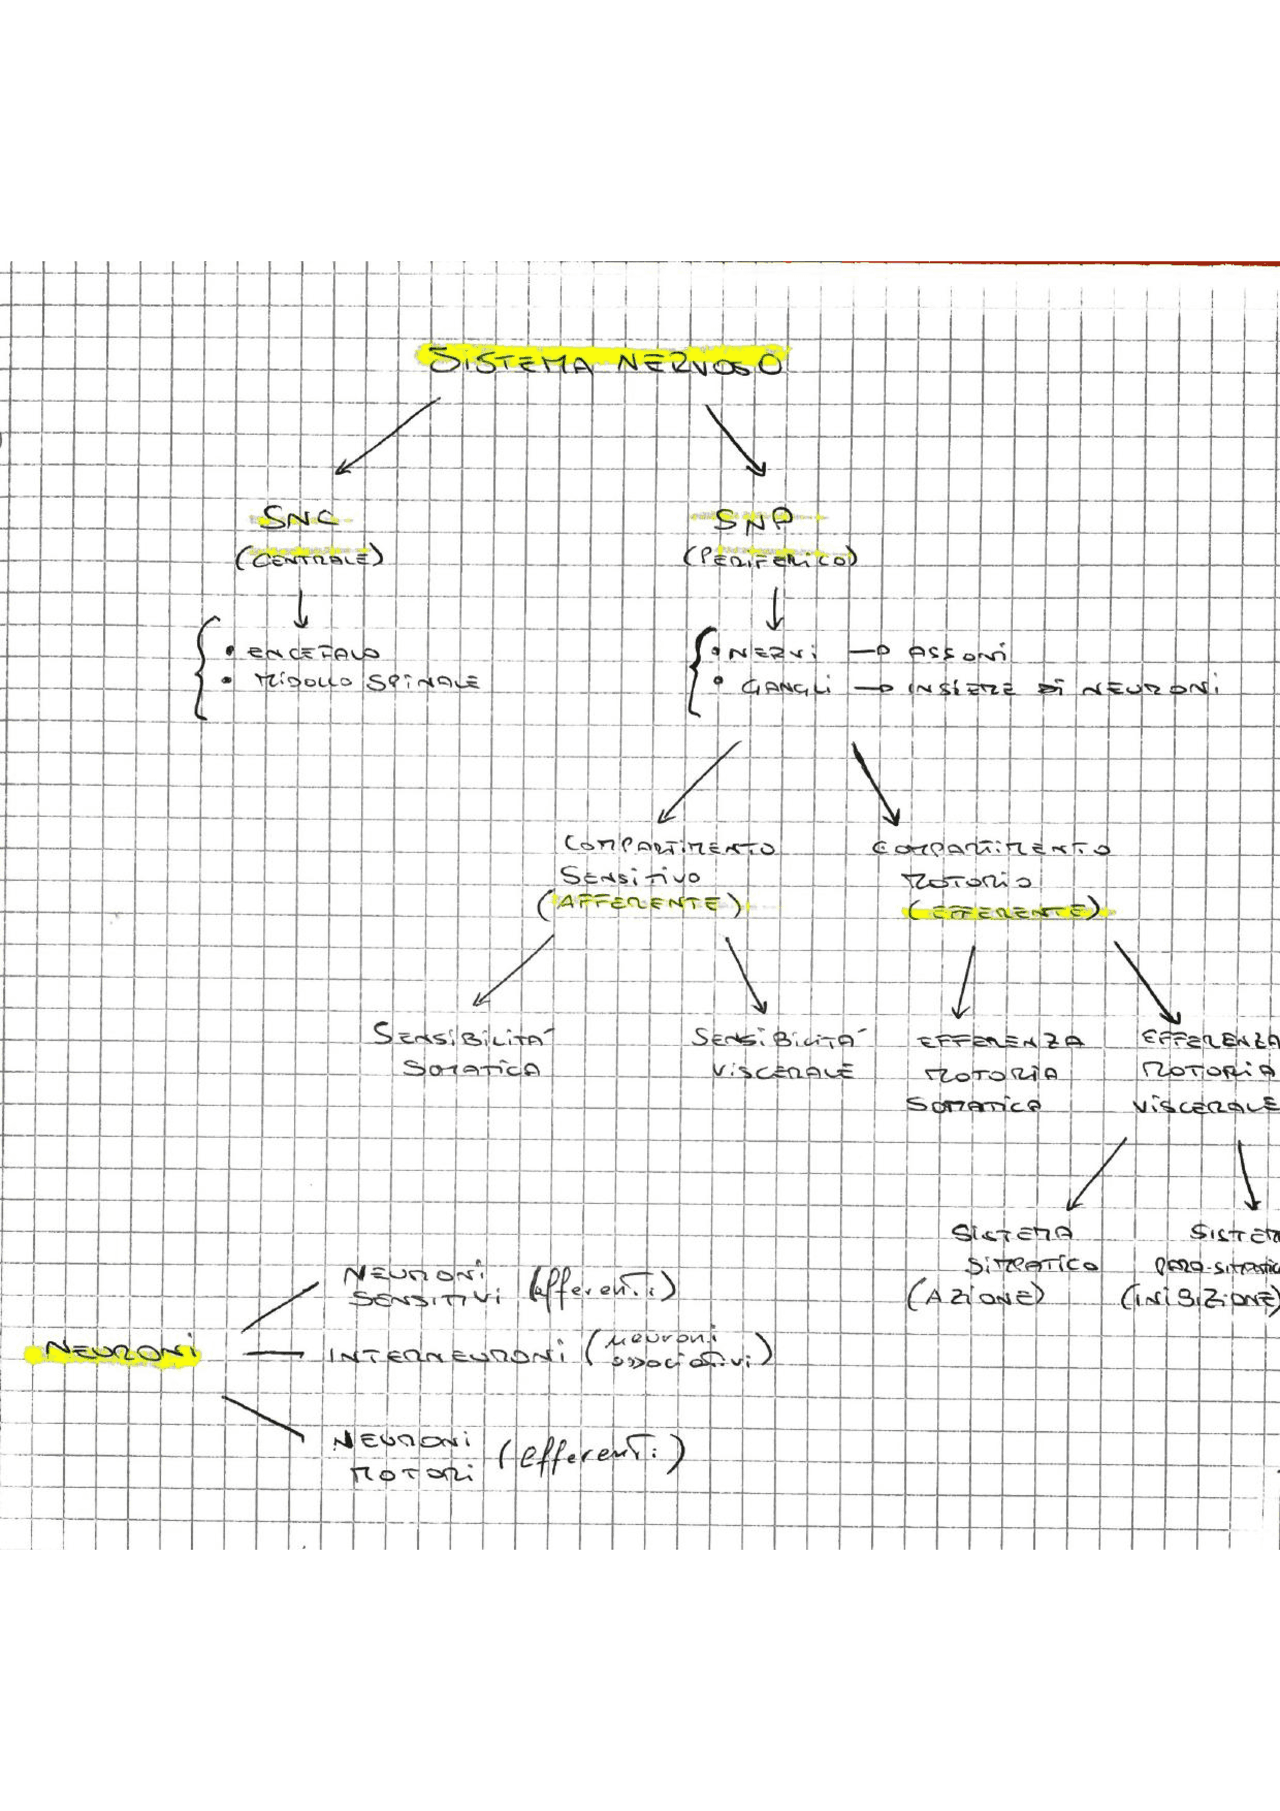 SISTEMA NERVOSO
SNC
(CENTRALE)
SNP
(PERIFERICO)
• ENCEFALO
• MIDOLLO SPINALE
• NERVI → ASSONI
• GANGLI → INSIEME DI NEURONI
COMPARTIMENTO
SENSITIVO
(AFFERENTE)
COMPARTIMENTO
MOTORIO
(EFFERENTE)
SENSIBILITÀ
SOMATICA
SENSIBILITÀ
VISCERALE
EFFERENZA
MOTORIA
SOMATICA
EFFERENZA
MOTORIA
VISCERALE
SISTEMA
SIMPATICO
(AZIONE)
SISTEM
PARA-SIMPATIC
(INIBIZIONE)
NEURONI
NEURONI
SENSITIVI (afferenti)
INTERNEURONI (neuroni
associativi)
NEURONI
MOTORI (efferenti)